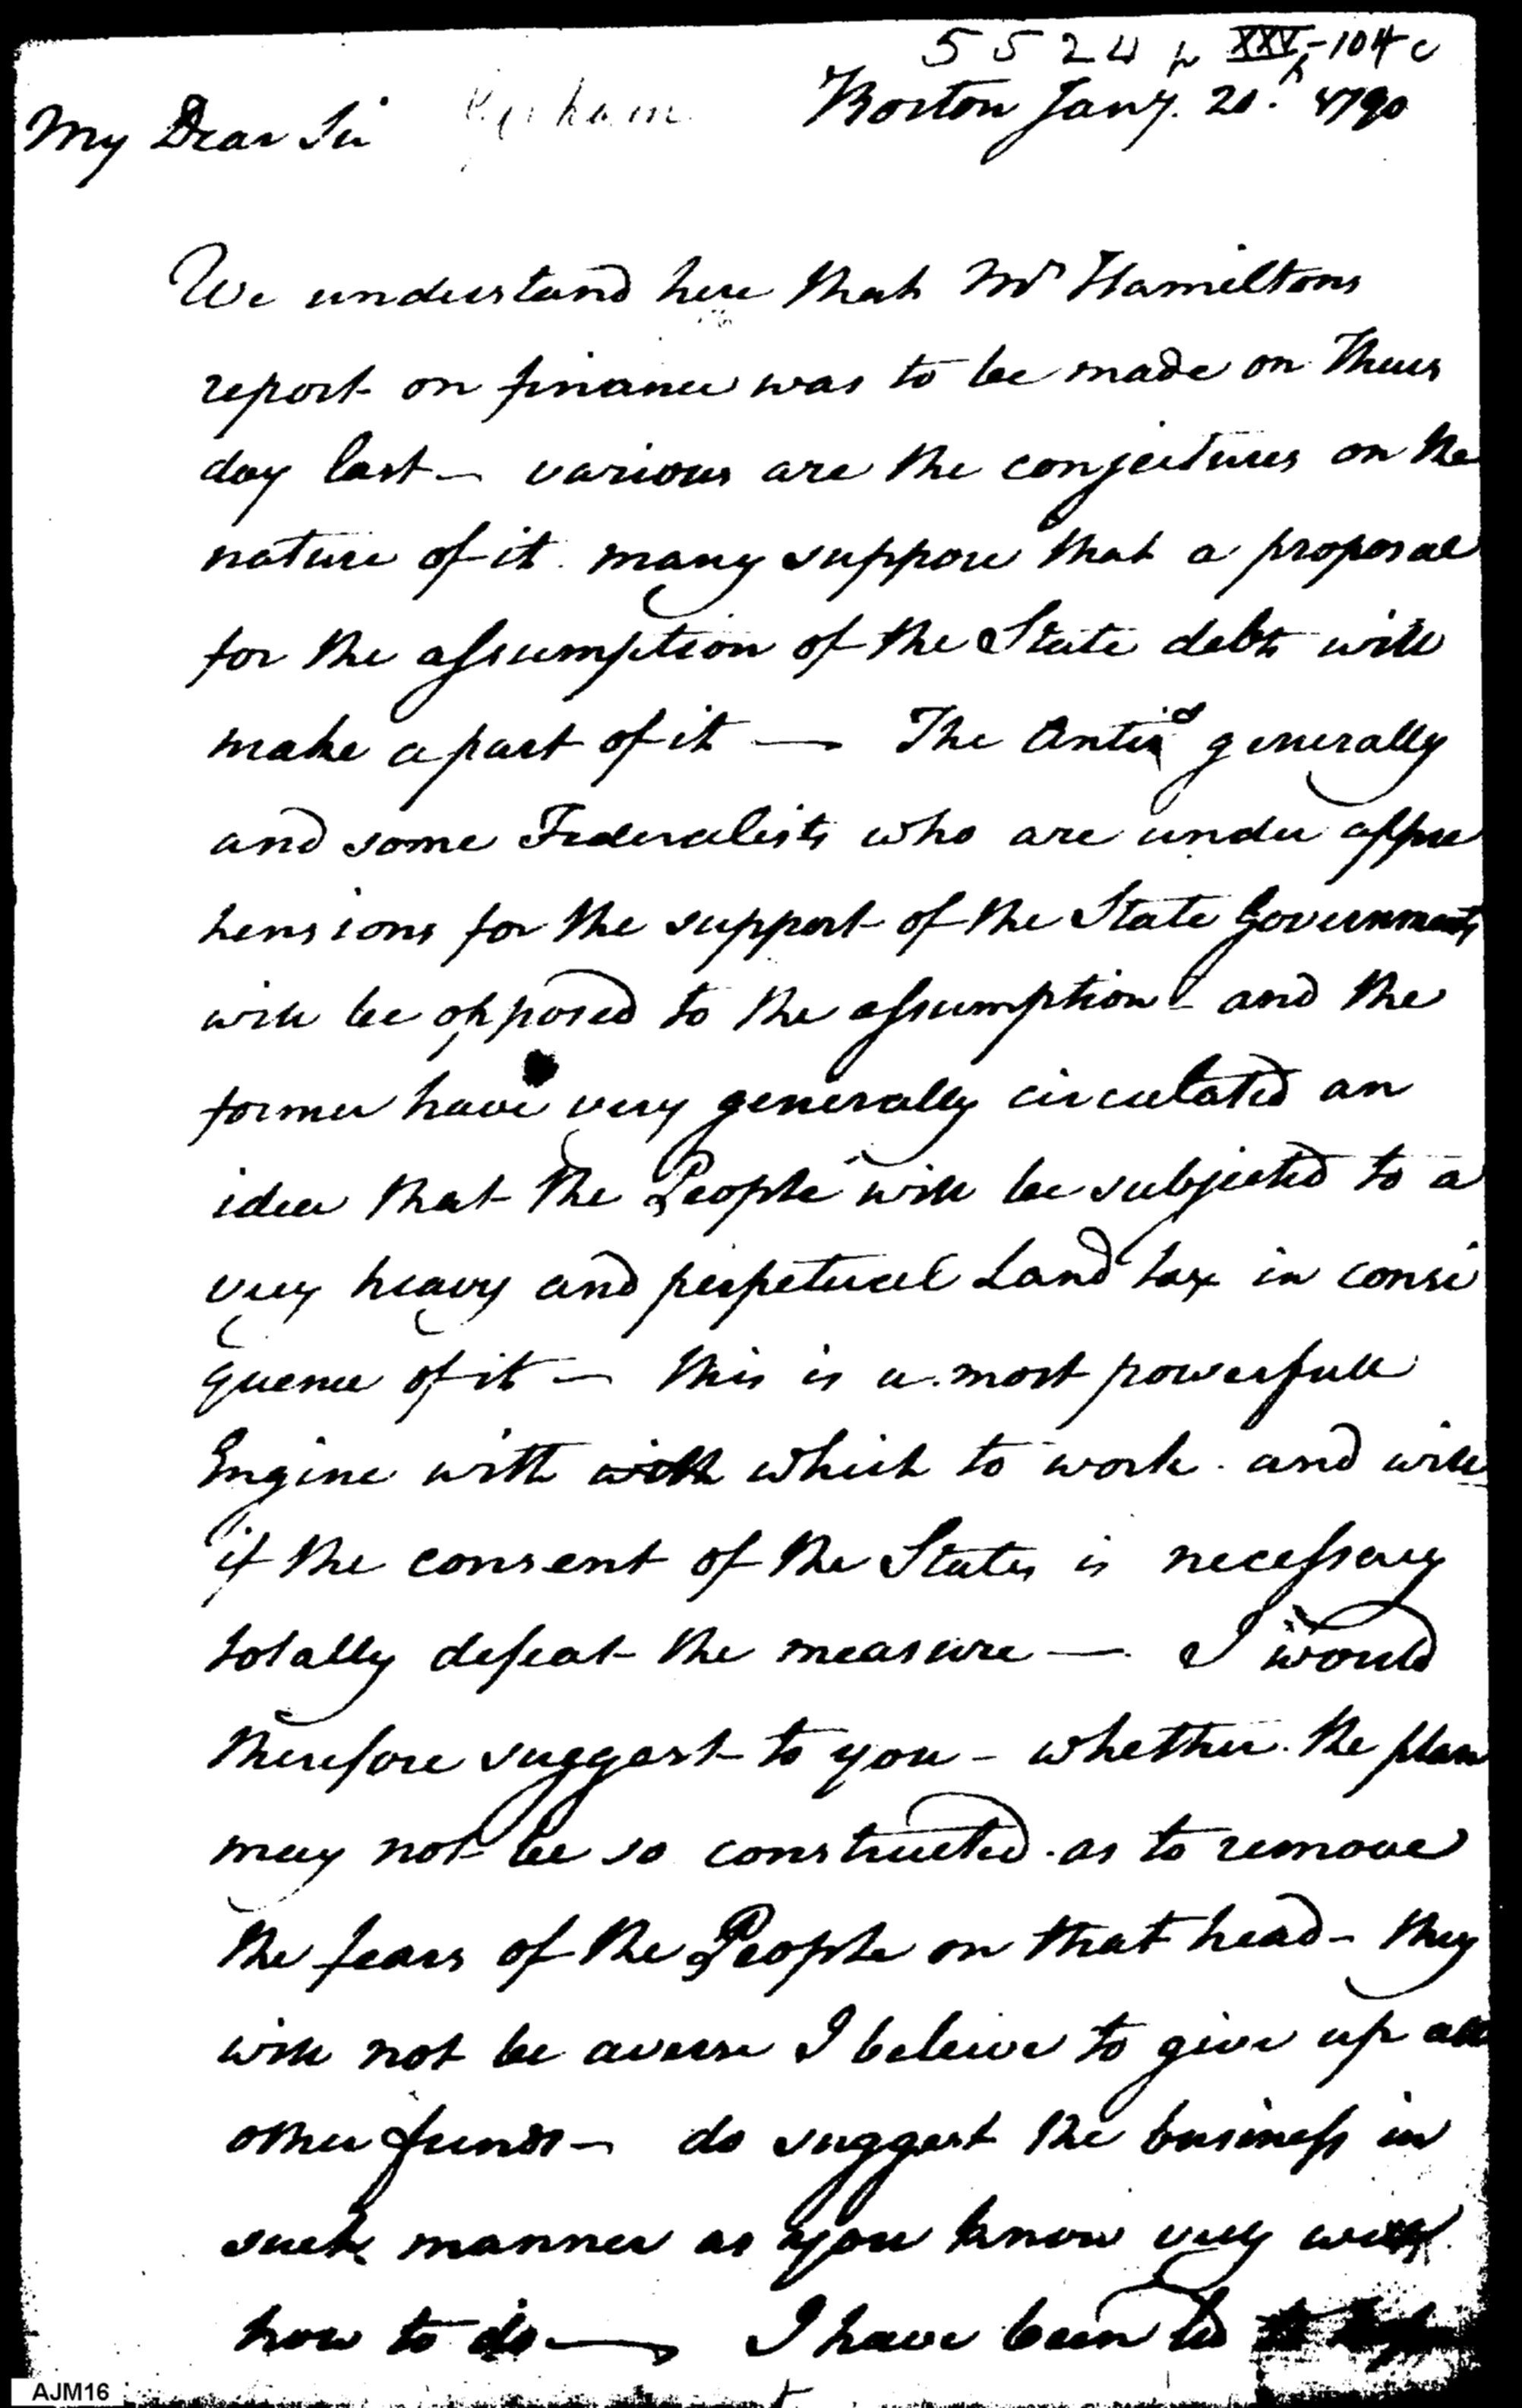 5524 XXV-104c
Gorham
Boston Jany. 20. 1790
My Dear Sir
We understand here that Mr Hamiltons
report on finance was to be made on Thurs
day last — various are the conjectures on the
nature of it. many suppose that a proposal
for the assumption of the State debts will
make a part of it — The Antis generally
and some Federalists who are under appre
hensions for the support of the State Governments
will be opposed to the assumption — and the
former have very generally circulated an
idea that the People will be subjected to a
very heavy and perpetual Land tax in conse
quence of it — this is a most powerfull
Engine with with which to work. and will
if the consent of the States is necessary
totally defeat the measure — I would
therefore suggest to you — whether the plan
may not be so constructed. as to remove
the fears of the People on that head — they
will not be averse I beleive to give up all
other funds — do suggest the business in
such manner as you know very well
how to do — I have been led to
AJM16